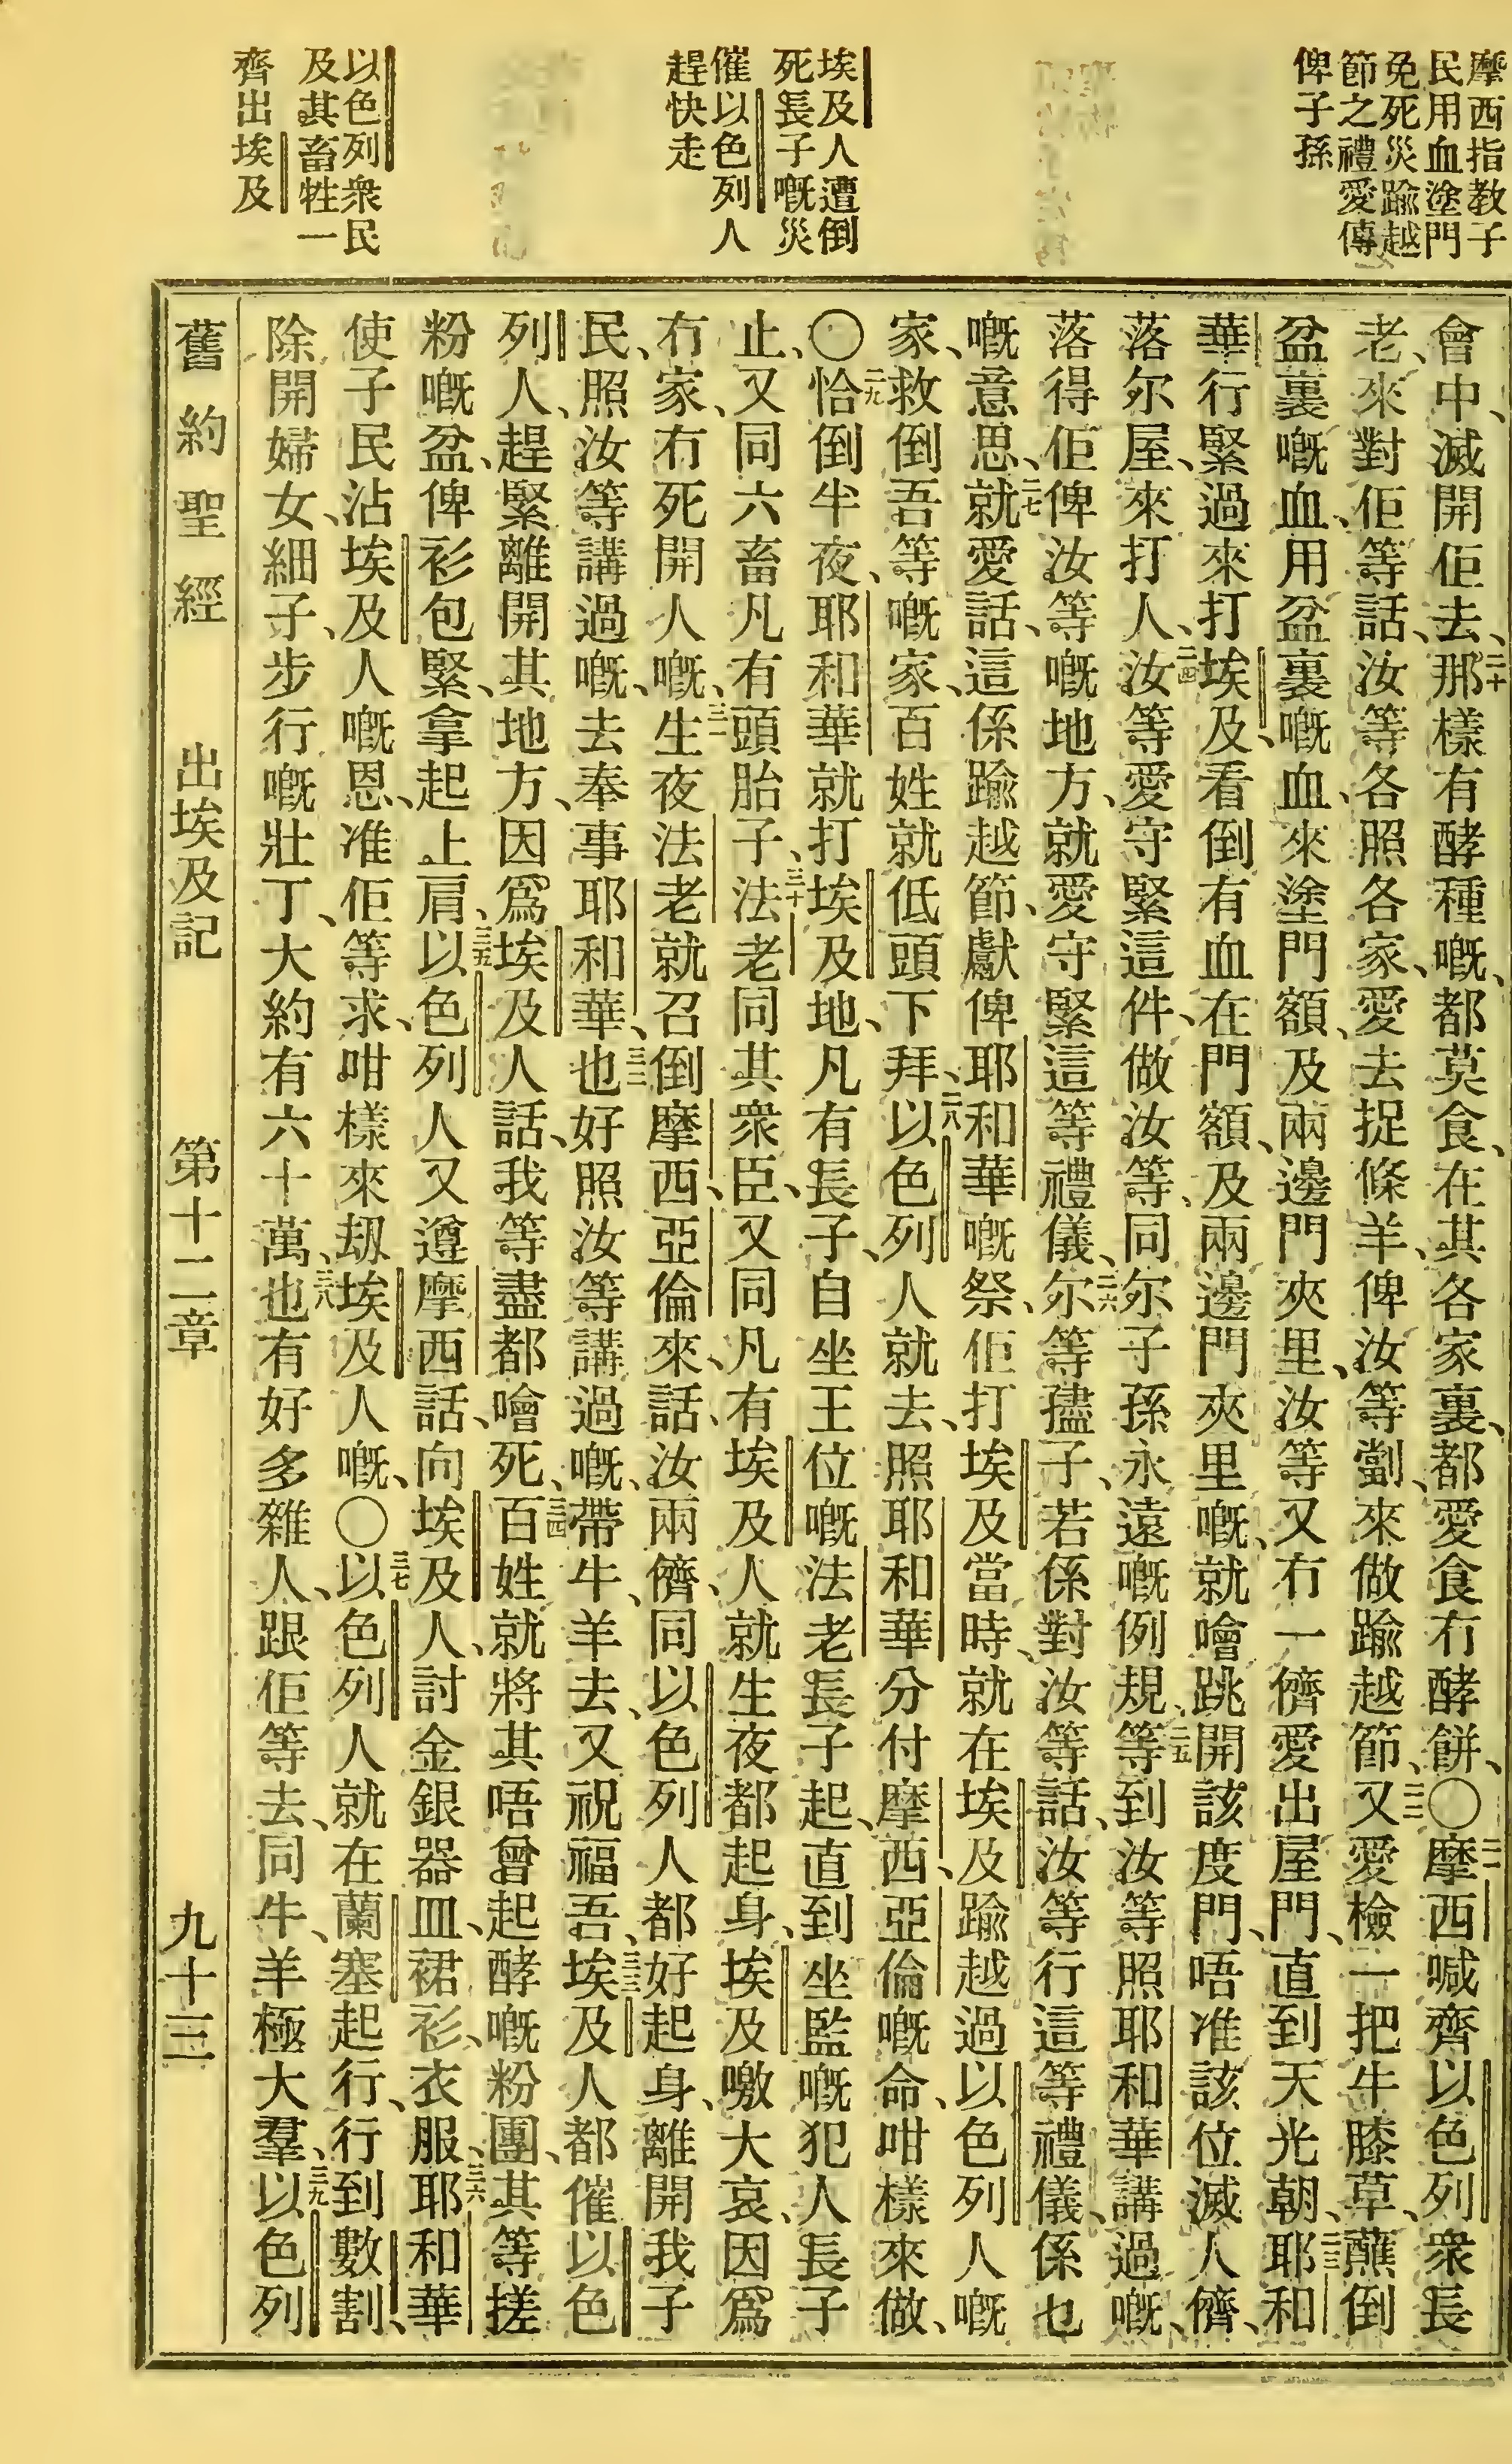 摩西指教子
民用血塗門
免死災踰越
節之禮愛傳
俾子孫
埃及人遭倒
死長子嘅災
催以色列人
趕快走
以色列衆民
及其畜牲一
齊出埃及
會中、滅開佢去、二十那樣有酵種嘅、都莫食、在其各家裏、都愛食冇酵餅、〇二一摩西喊齊以色列衆長
老、來對佢等話、汝等各照各家、愛去捉條羊、俾汝等劏、來做踰越節、二二又愛檢一把牛膝草、蘸倒
盆裏嘅血、用盆裏嘅血、來塗門額、及兩邊門夾里、汝等又冇一儕愛出屋門、直到天光朝、二三耶和
華行緊過來打埃及、看倒有血在門額、及兩邊門夾里嘅、就噲跳開該度門、唔准該位滅人儕、
落尔屋、來打人、二四汝等愛守緊這件、做汝等、同尔子孫永遠嘅例規、二五等到汝等照耶和華講過嘅、
落得佢俾汝等嘅地方、就愛守緊這等禮儀、二六尔等𢯱子、若係對汝等話、汝等行這等禮儀、係乜
嘅意思、二七就愛話、這係踰越節、獻俾耶和華嘅祭、佢打埃及當時、就在埃及踰越過以色列人嘅
家、救倒吾等嘅家、百姓就低頭下拜、二八以色列人就去、照耶和華分付摩西、亞倫嘅命、咁樣來做、
〇二九恰倒半夜、耶和華就打埃及地、凡有長子、自坐王位嘅法老長子起、直到坐監嘅犯人長子
止、又同六畜凡有頭胎子、三十法老同其衆臣、又同凡有埃及人就生夜都起身、埃及噭大哀、因爲
冇家、冇死開人嘅、三一生夜法老就召倒摩西、亞倫來、話、汝兩儕、同以色列人都好起身、離開我子
民、照汝等講過嘅、去奉事耶和華、三二也好照汝等講過嘅、帶牛、羊去、又祝福吾、三三埃及人都催以色
列人、趕緊離開其地方、因爲埃及人話、我等盡都噲死、三四百姓就將其唔曾起酵嘅粉團、其等搓
粉嘅盆、俾衫包緊、拿起上肩、三五以色列人又遵摩西話、向埃及人、討金銀器皿、裙衫、衣服、三六耶和華
使子民沾埃及人嘅恩、准佢等求、咁樣來刼埃及人嘅、〇三七以色列人就在蘭塞起行、行到數割、
除開婦女、細子、步行嘅壯丁、大約有六十萬、三八也有好多雜人、跟佢等去、同牛、羊極大羣、三九以色列
舊約聖經　出埃及記　第十二章　九十三